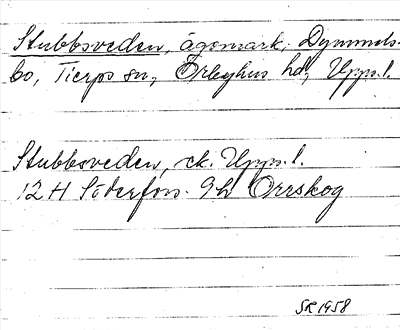 Stubbsveden, ägomark, Dymmels-
bo, Tierps sn, Örbyhus hd, Upps. l.
Stubbsveden, ek. Upps. l.
12 H Söderfors. 9h Orrskog
SR 1958